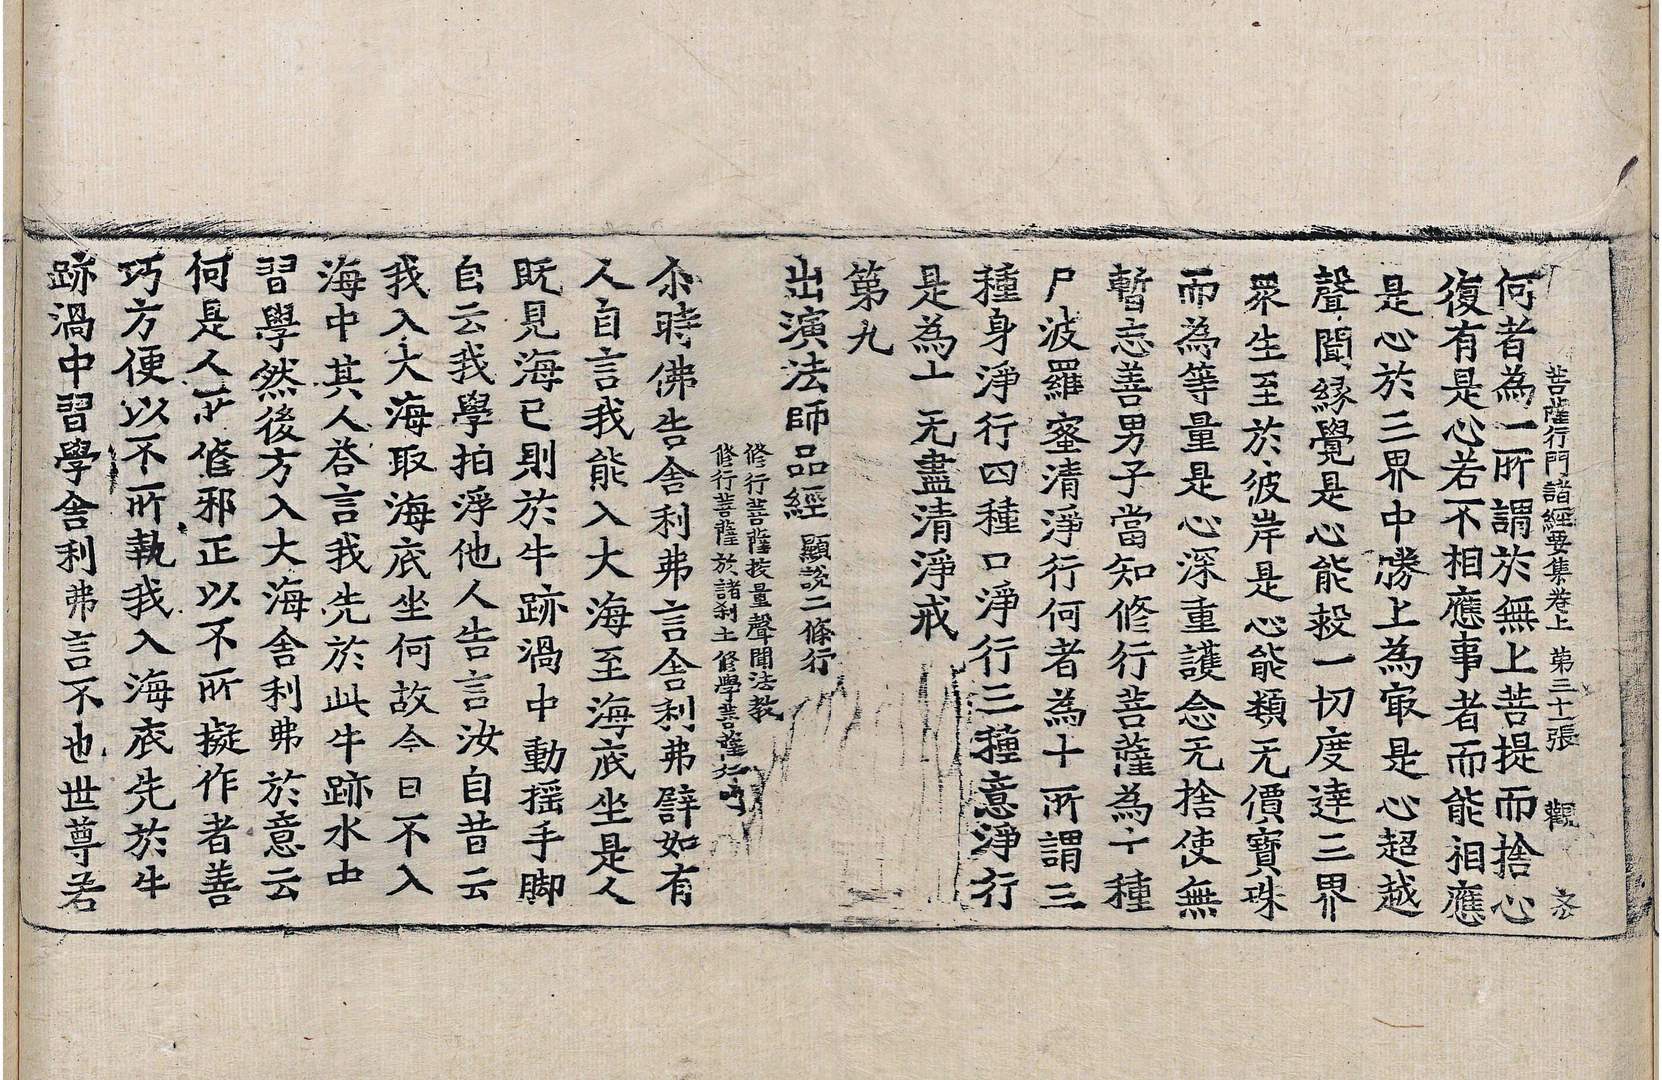 菩薩行門諸經要集卷上 第三十一張 觀
何者為一所謂於無上菩提而捨心
復有是心若不相應事者而能相應
是心於三界中勝上為㝡是心超越
聲聞緣覺是心能救一切度達三界
眾生至於彼岸是心能類无價寶珠
而為等量是心深重護念无捨使無
暫忘善男子當知修行菩薩為十種
尸波羅蜜清淨行何者為十所謂三
種身淨行四種口淨行三種意淨行
是為十 无盡清淨戒
第九
出演法師品經 顯說二條行
修行菩薩挍量聲聞法教
修行菩薩於諸刹土修學菩薩
尒時佛告舍利弗言舍利弗譬如有
人自言我能入大海至海底坐是人
既見海已則於牛跡渦中動摇手脚
自云我學拍浮他人告言汝自昔云
我入大海取海底坐何故今日不入
海中其人荅言我先於此牛跡水中
習學然後方入大海舍利弗於意云
何是人所修邪正以不所擬作者善
巧方便以不所執我入海底先於牛
跡渦中習學舍利弗言不也世尊若